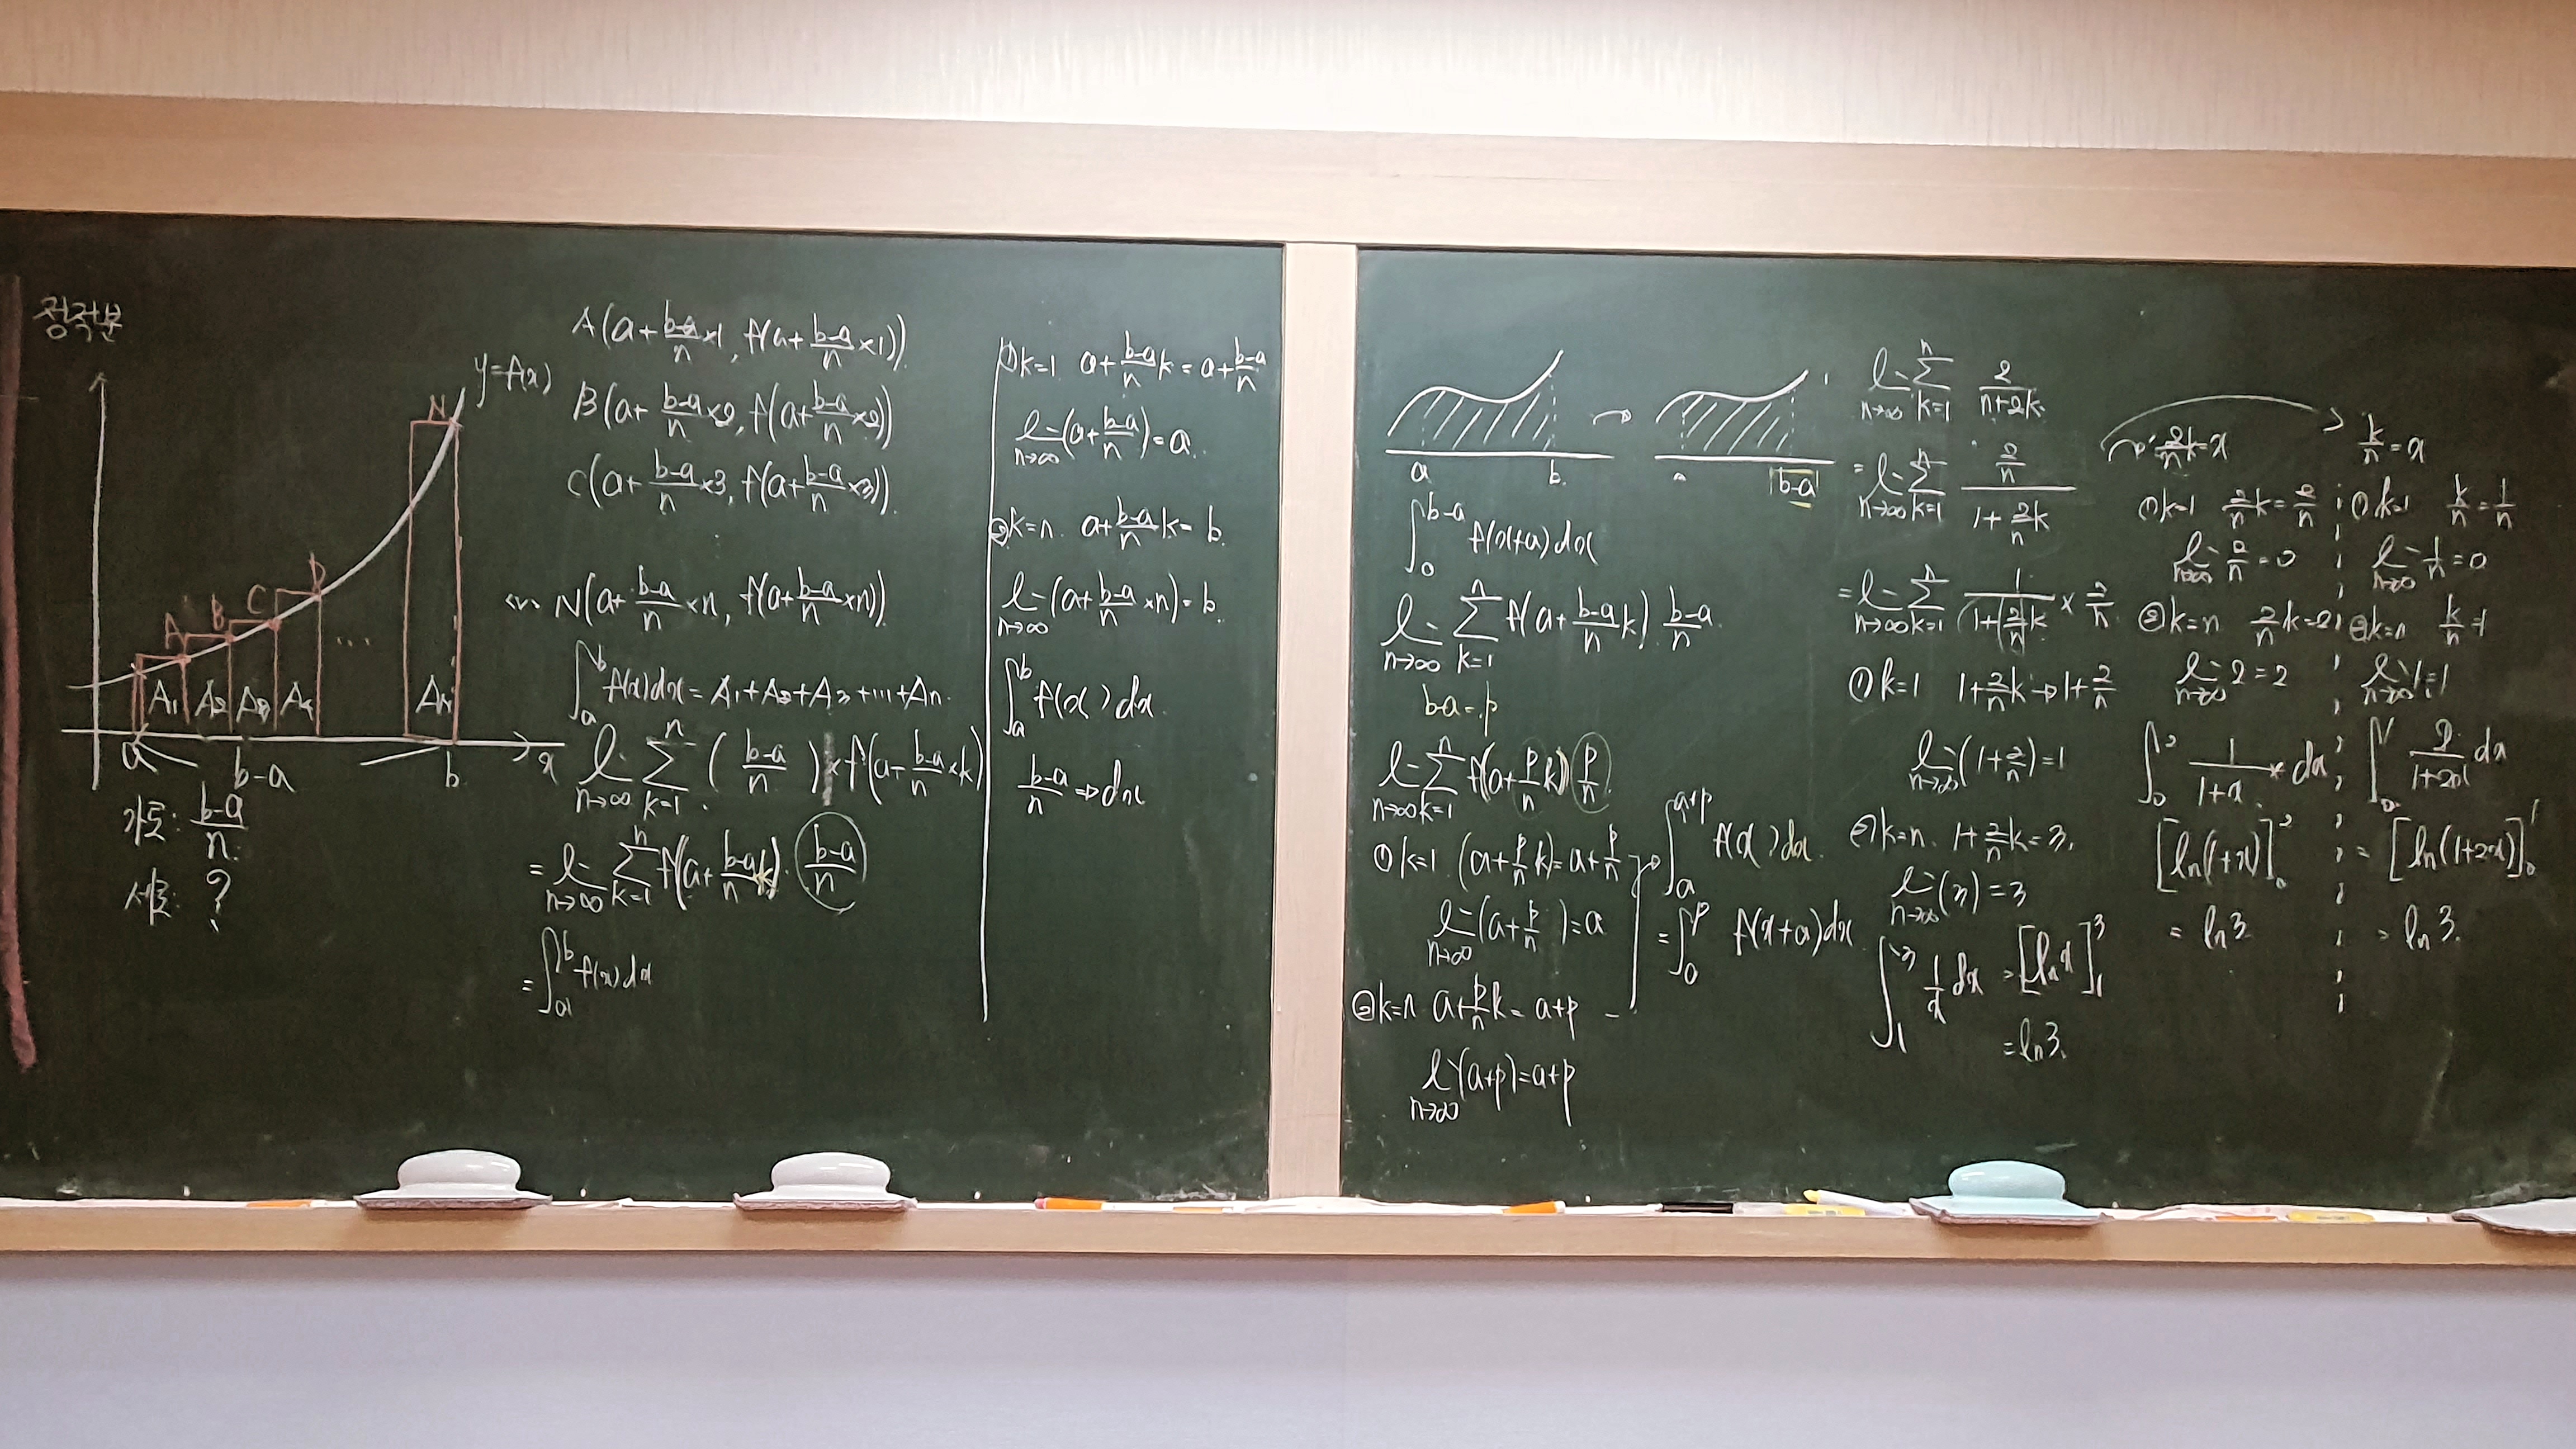 정적분
y=f(x)
N
D
C
B
A
A₁ A₂ A₃ A₄ ... Aₙ
a b-a b x
가로: (b-a)/n
세로: ?
A(a+(b-a)/n×1, f(a+(b-a)/n×1))
B(a+(b-a)/n×2, f(a+(b-a)/n×2))
C(a+(b-a)/n×3, f(a+(b-a)/n×3))
N(a+(b-a)/n×n, f(a+(b-a)/n×n))
∫ₐᵇ f(x)dx = A₁+A₂+A₃+...+Aₙ
lim n→∞ Σ k=1 n ((b-a)/n)×f(a+(b-a)/n×k)
= lim n→∞ Σ k=1 n f(a+(b-a)/n k)·(b-a)/n
= ∫ₐᵇ f(x)dx
① k=1 a+(b-a)/n k = a+(b-a)/n
lim n→∞ (a+(b-a)/n) = a
② k=n a+(b-a)/n k = b
lim n→∞ (a+(b-a)/n×n) = b
∫ₐᵇ f(x)dx
(b-a)/n ⇒ dx
a b → b-a
∫₀^(b-a) f(x+a)dx
lim n→∞ Σ k=1 n f(a+(b-a)/n k)·(b-a)/n
b-a=p
lim n→∞ Σ k=1 n f(a+p/n k) p/n
① k=1 (a+p/n k) = a+p/n
lim n→∞ (a+p/n) = a
② k=n a+p/n k = a+p
lim n→∞ (a+p) = a+p
∫ₐ^(a+p) f(x)dx
= ∫₀^p f(x+a)dx
lim n→∞ Σ k=1 n 2/(n+2k)
= lim n→∞ Σ k=1 n (2/n)/(1+2k/n)
= lim n→∞ Σ k=1 n 1/(1+(2/n)k) × 2/n
① k=1 1+2/n k → 1+2/n
lim n→∞ (1+2/n) = 1
② k=n 1+2/n k = 3
lim n→∞ (3) = 3
∫₁³ 1/x dx = [ln x]₁³
= ln3
2/n k = x
① k=1 2/n k = 2/n
lim n→∞ 2/n = 0
② k=n 2/n k = 2
lim n→∞ 2 = 2
∫₀² 1/(1+x) dx
[ln(1+x)]₀²
= ln3
k/n = x
① k=1 k/n = 1/n
lim n→∞ 1/n = 0
② k=n k/n = 1
lim n→∞ 1 = 1
∫₀¹ 2/(1+2x) dx
= [ln(1+2x)]₀¹
= ln3